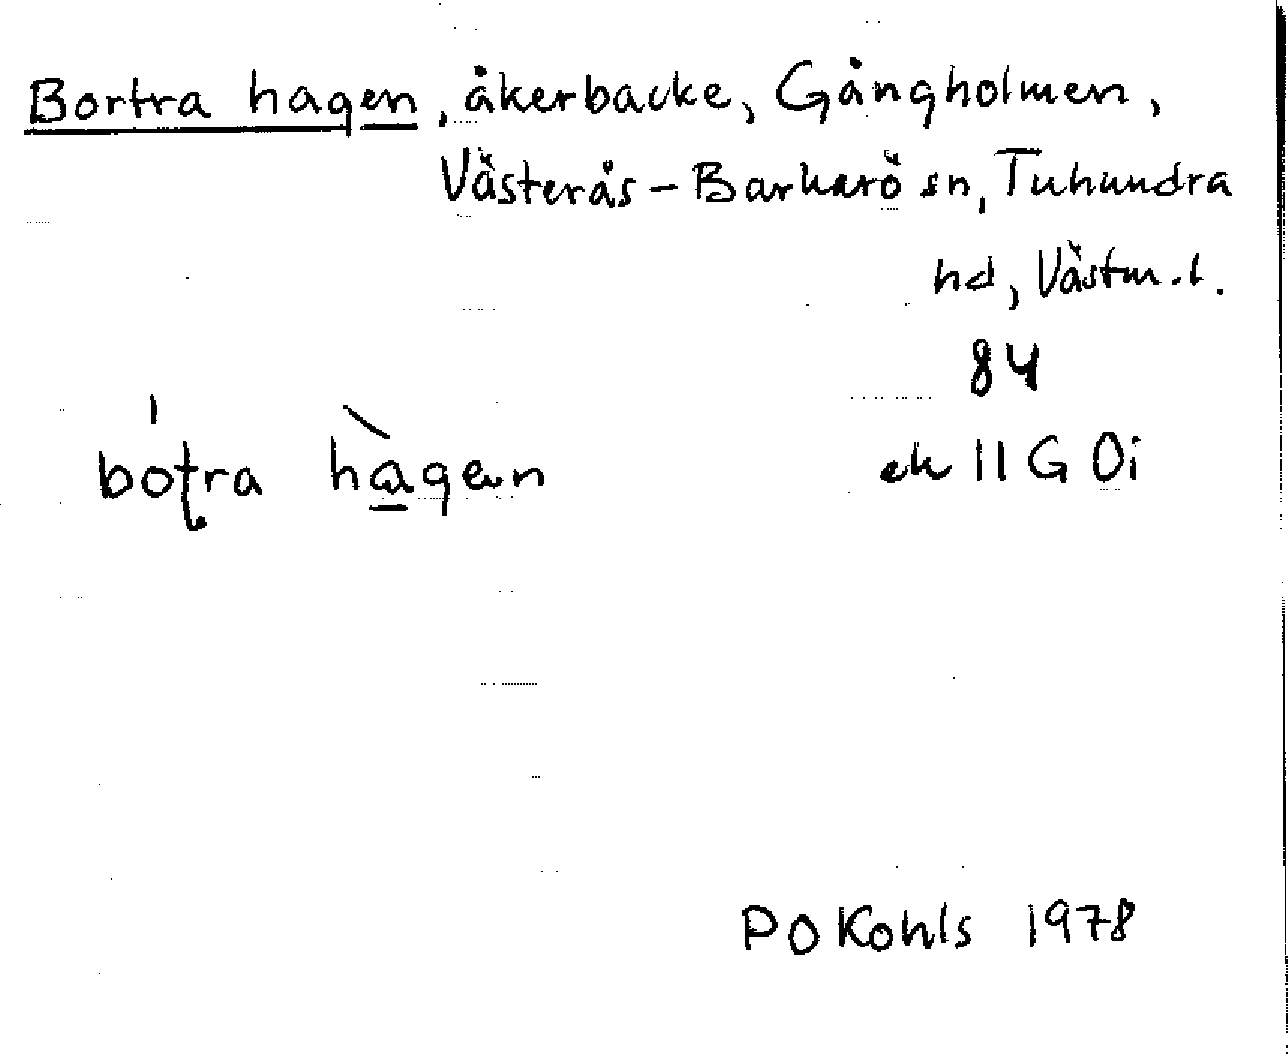 Bortra hagen, åkerbacke, Gångholmen,
Västerås-Barkarö sn, Tuhundra
hd, Västm.l.
84
bóʈra hàgen
ek 11 G 0i
P O Kohls 1978